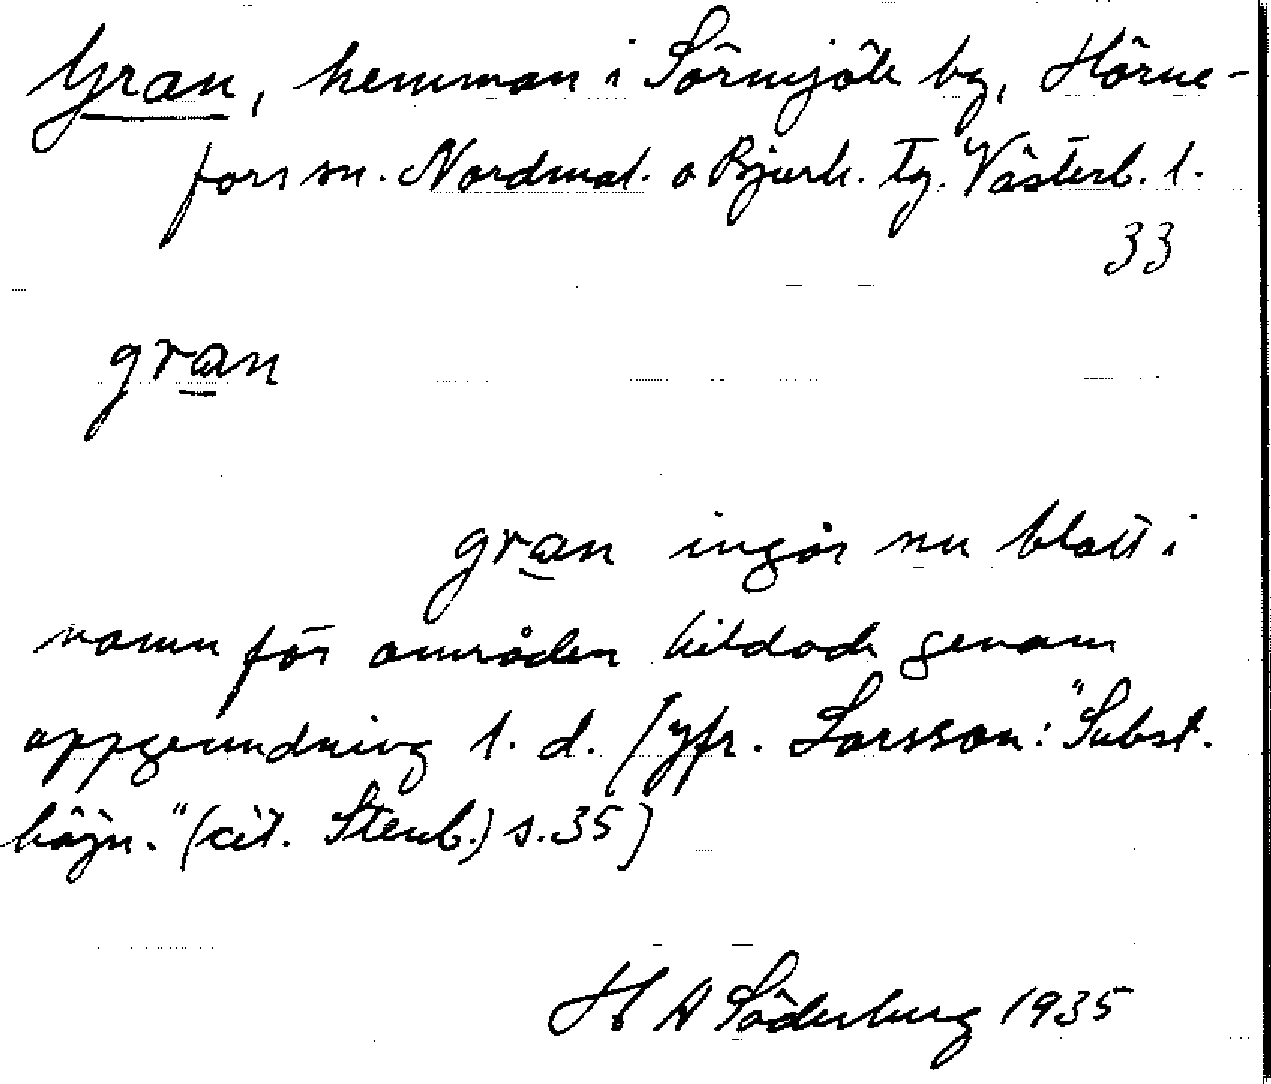 Gran, hemman i Sörmjöle by, Hörne-
fors sn. Nordmal. o Bjurh. tg. Västerb. l.
33
gran
gran ingår nu blott i
namn för områden bildade genom
uppgrundning l. d. (jfr. Larsson: "Subst.
böjn." (cit. Stenb.) s. 35)
H A Söderberg 1935